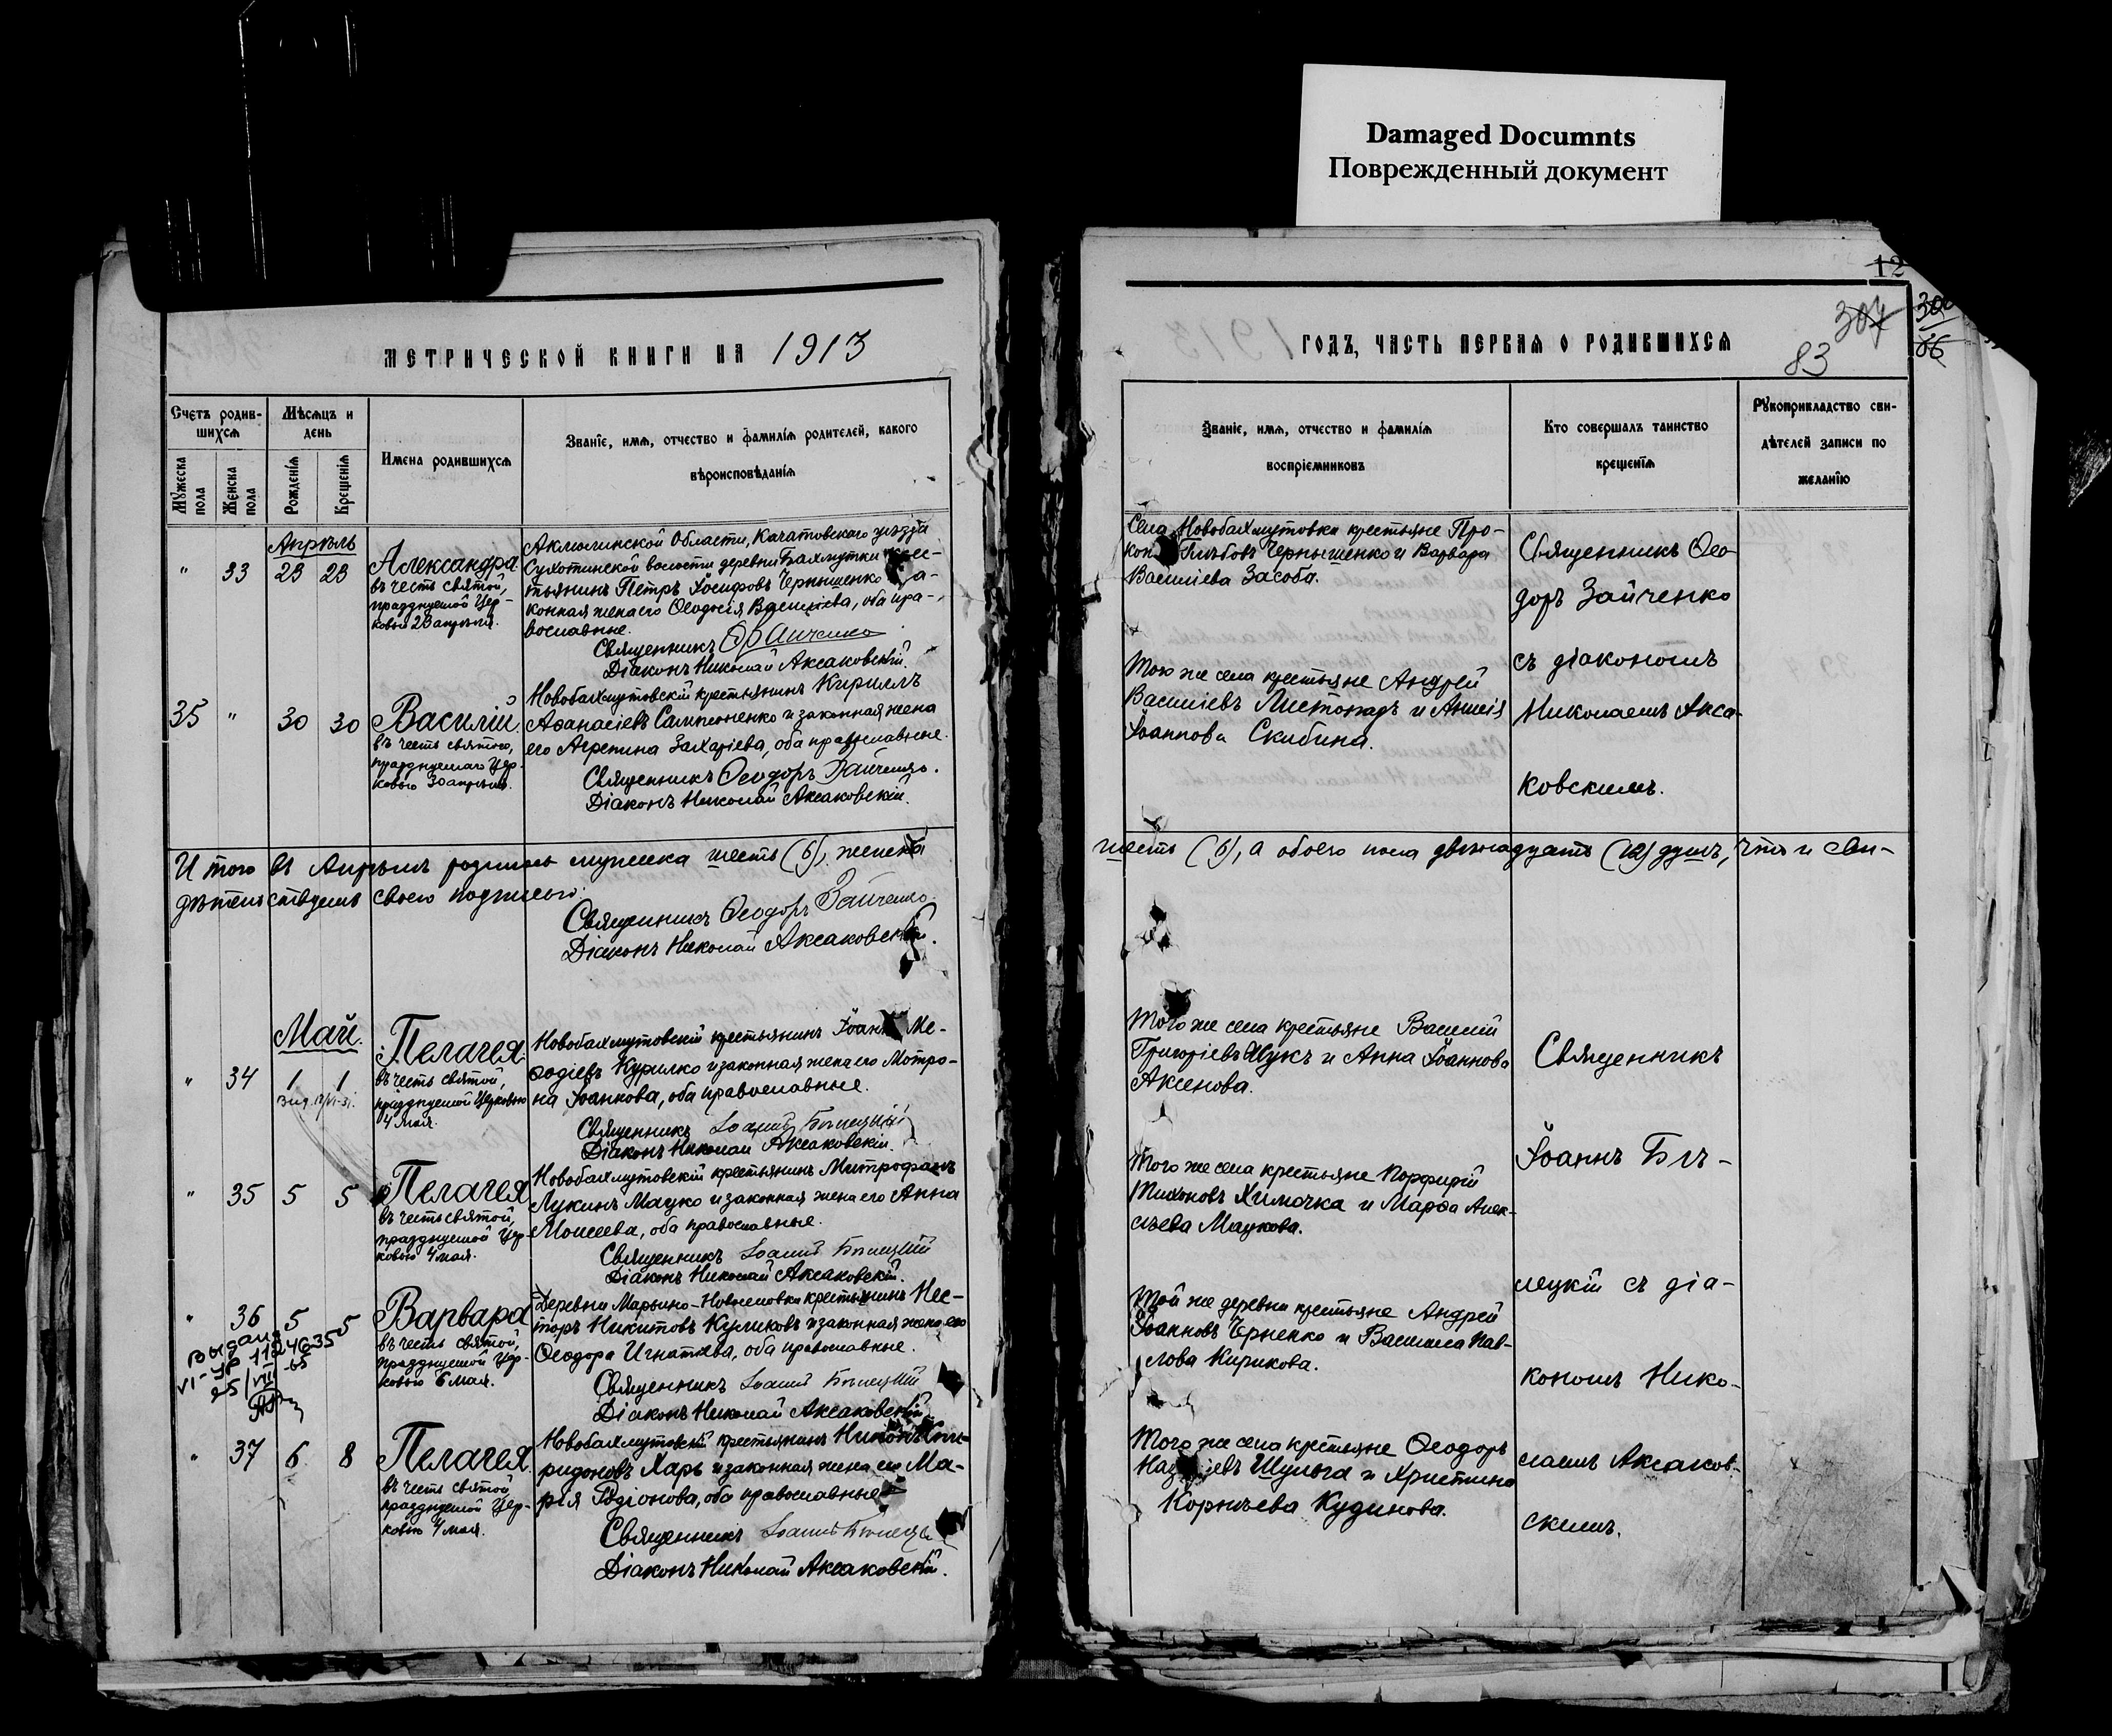 Damaged Documnts
Поврежденный документ
12
307
300
86
83
МЕТРИЧЕСКОЙ КНИГИ НА 1913
ГОДЪ, ЧАСТЬ ПЕРВАЯ О РОДИВШИХСЯ
Счетъ родив-
шихся
Мужеска пола
Женска пола
Мѣсяцъ и
день
Рожденія
Крещенія
Имена родившихся
Званіе, имя, отчество и фамилія родителей, какого
вѣроисповѣданія
Званіе, имя, отчество и фамилія
воспріемниковъ
Кто совершалъ таинство
крещенія
Рукоприкладство сви-
дѣтелей записи по
желанію
Апрѣль
" 33 23 23
Александра
въ честь святой,
празднуемой Цер-
ковью 23 апрѣля.
Акмолинской Области, Кокчетавскаго уѣзда
Сухотинской волости деревни Бахмутки крес-
тьянинъ Петръ Іосифовъ Чернышенко и за-
конная жена его Ѳеодосія Васильева, оба пра-
вославные.
Священникъ Ѳ. Зайченко
Діаконъ Николай Аксаковскій.
Села Новобахмутовки крестьяне Про-
Глѣбовъ Чернышенко и Варвара
Васильева Засоба.
Священникъ Ѳео-
доръ Зайченко
съ діакономъ
Николаемъ Акса-
ковскимъ.
35 " 30 30
Василій.
въ честь святого,
празднуемаго Цер-
ковью 30 апрѣля.
Новобахмутовскій крестьянинъ Кириллъ
Аѳанасіевъ Сампсоненко и законная жена
его Агрепина Захаріева, оба православные.
Священникъ Ѳеодоръ Зайченко.
Діаконъ Николай Аксаковскій.
Того же села крестьяне Андрей
Васильевъ Листопадъ и
Іоаннова Скибина.
Итого въ Апрѣлѣ родилось мужеска шесть (6), женска
шесть (6), а обоего пола двенадцать (12) душъ, что и сви-
дѣтельствуемъ своею подписью:
Священникъ Ѳеодоръ Зайченко.
Діаконъ Николай Аксаковскій.
Май.
" 34 1 1
Пелагея.
въ честь святой,
празднуемой Церковью
4 мая.
Новобахмутовскій крестьянинъ Іоаннъ Ме-
ѳодіевъ Курилко и законная жена его Мотро-
на Іоаннова, оба православные.
Священникъ Іоаннъ Бѣлецкій
Діаконъ Николай Аксаковскій.
Того же села крестьяне Василій
Григоріевъ Жукъ и Анна Іоаннова
Аксенова.
Священникъ
Іоаннъ Бѣ-
лецкій съ діа-
кономъ Нико-
лаемъ Аксаков-
скимъ.
" 35 5 5
Пелагея
въ честь святой,
празднуемой Цер-
ковью 4 мая.
Новобахмутовскій крестьянинъ Митрофанъ
Лукинъ Мацко и законная жена его Анна
Моисеева, оба православные.
Священникъ Іоаннъ Бѣлецкій
Діаконъ Николай Аксаковскій.
Того же села крестьяне Порфирій
Тихоновъ Химочка и Марѳа Алек-
сѣева Мацкова.
" 36 5 5
Варвара
въ честь святой,
празднуемой Цер-
ковью 6 мая.
Деревни Марьино-Новоселовки крестьянинъ Нес-
торъ Никитовъ Куликовъ и законная жена его
Ѳеодора Игнатьева, оба православные.
Священникъ Іоаннъ Бѣлецкій
Діаконъ Николай Аксаковскій.
Той же деревни крестьяне Андрей
Іоанновъ Черненко и Василиса Пав-
лова Кирикова.
" 37 6 8
Пелагея.
въ честь святой
празднуемой Цер-
ковью 4 мая.
Новобахмутовскій крестьянинъ Никонъ Спи-
ридоновъ Харь и законная жена его Ма-
рія Родіонова, оба православные
Священникъ Іоаннъ Бѣлецкій
Діаконъ Николай Аксаковскій.
Того же села крестьяне Ѳеодоръ
Шульга и Христина
Корнѣева Кудинова.